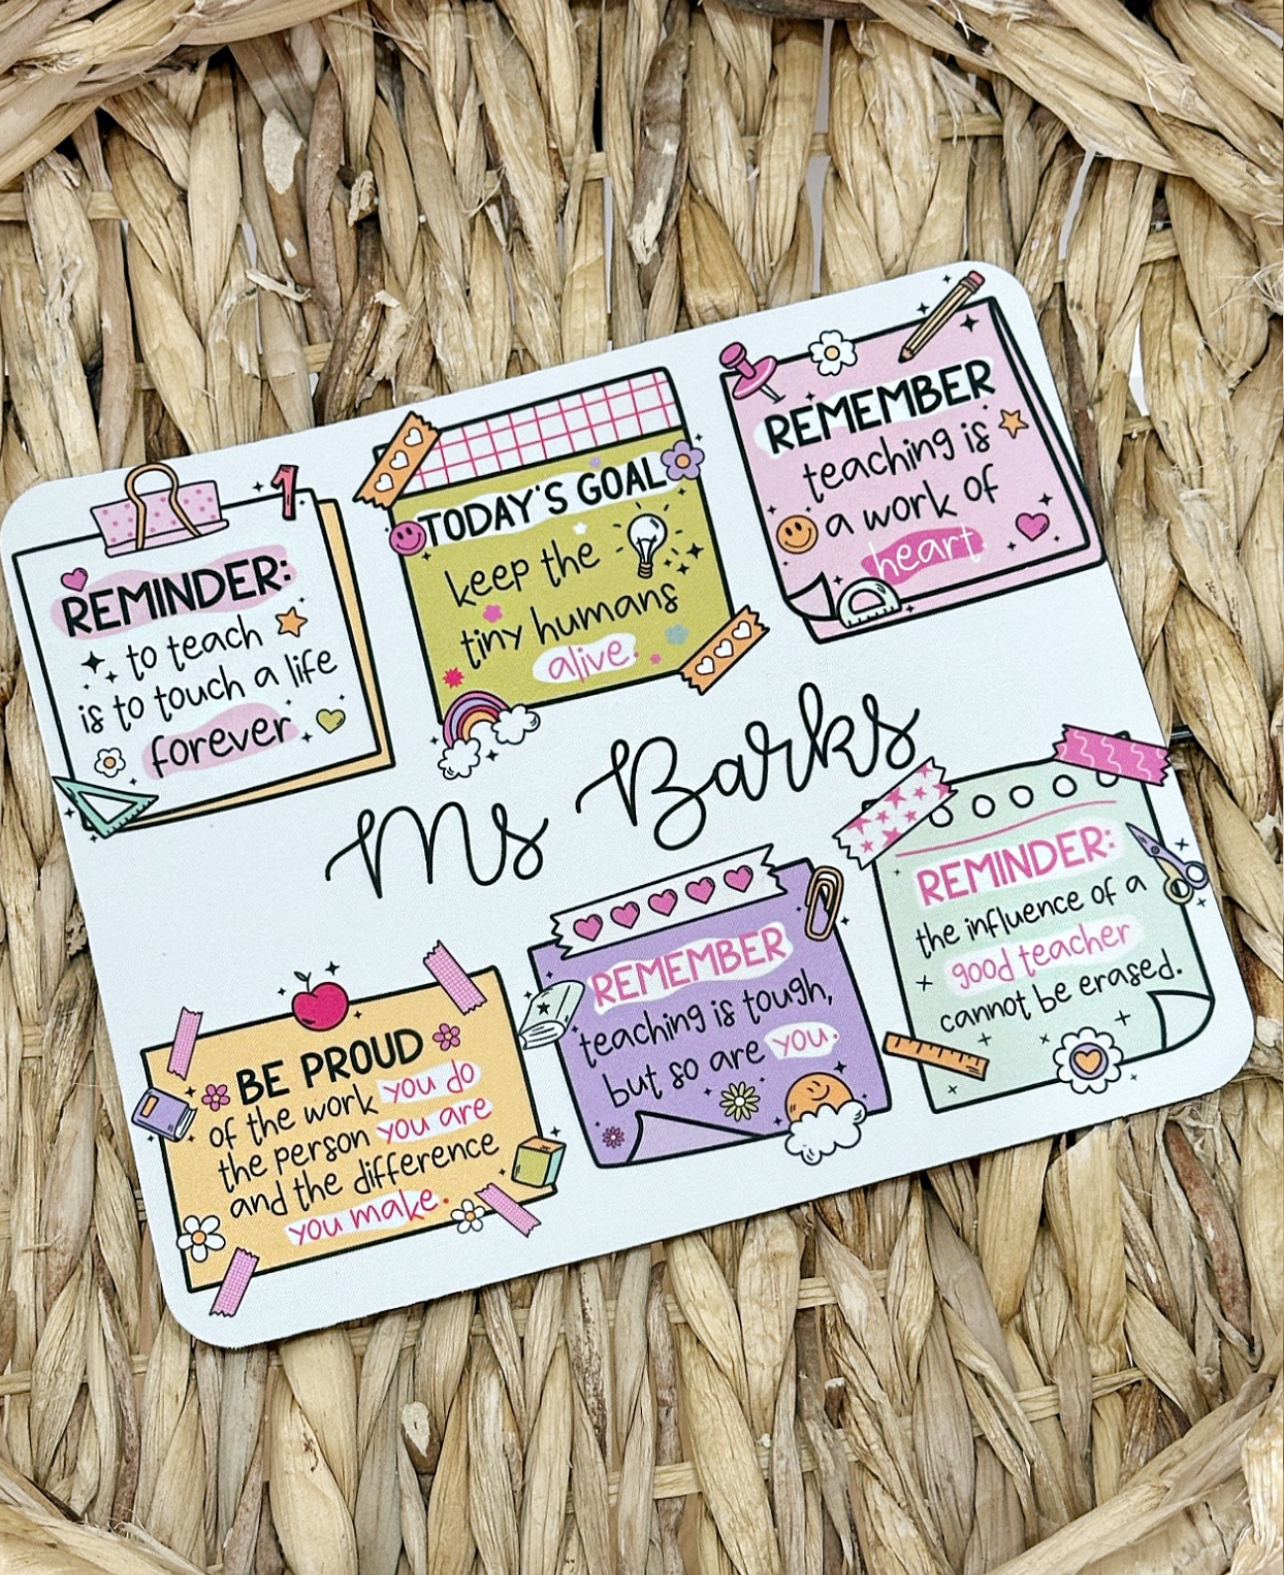 REMINDER:
to teach
is to touch a life
forever
1
TODAY'S GOAL
keep the
tiny humans
alive.
REMEMBER
teaching is
a work of
heart.
Ms Barks
BE PROUD
of the work you do
the person you are
and the difference
you make.
REMEMBER
teaching is tough,
but so are you.
REMINDER:
the influence of a
good teacher
cannot be erased.